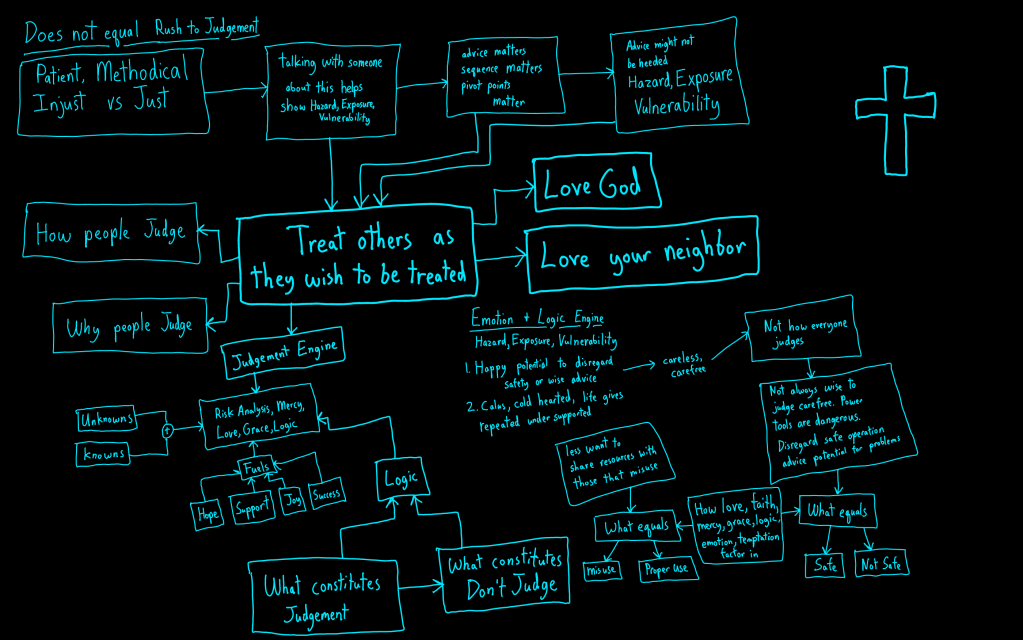 Does not equal Rush to Judgement
Patient, Methodical
Injust vs Just
talking with someone
about this helps
show Hazard, Exposure,
Vulnerability
advice matters
sequence matters
pivot points
matter
Advice might not
be heeded
Hazard, Exposure
Vulnerability
Love God
Love your neighbor
Treat others as
they wish to be treated
How people Judge
Why people Judge
Judgement Engine
Risk Analysis, Mercy,
Love, Grace, Logic
Unknowns
+
Knowns
Fuels
Hope
Support
Joy
Success
Logic
What constitutes
Judgement
What constitutes
Don't Judge
Emotion + Logic Engine
Hazard, Exposure, Vulnerability
1. Happy potential to disregard
safety or wise advice
careless,
carefree
2. Calm, cold hearted, life gives
repeated under supported
Not how everyone
judges
Not always wise to
judge carefree. Power
tools are dangerous.
Disregard safe operation
advice potential for problems
less want to
share resources with
those that misuse
What equals
misuse
Proper Use
How love, faith,
mercy, grace, logic,
emotion, temptation
factor in
What equals
Safe
Not Safe